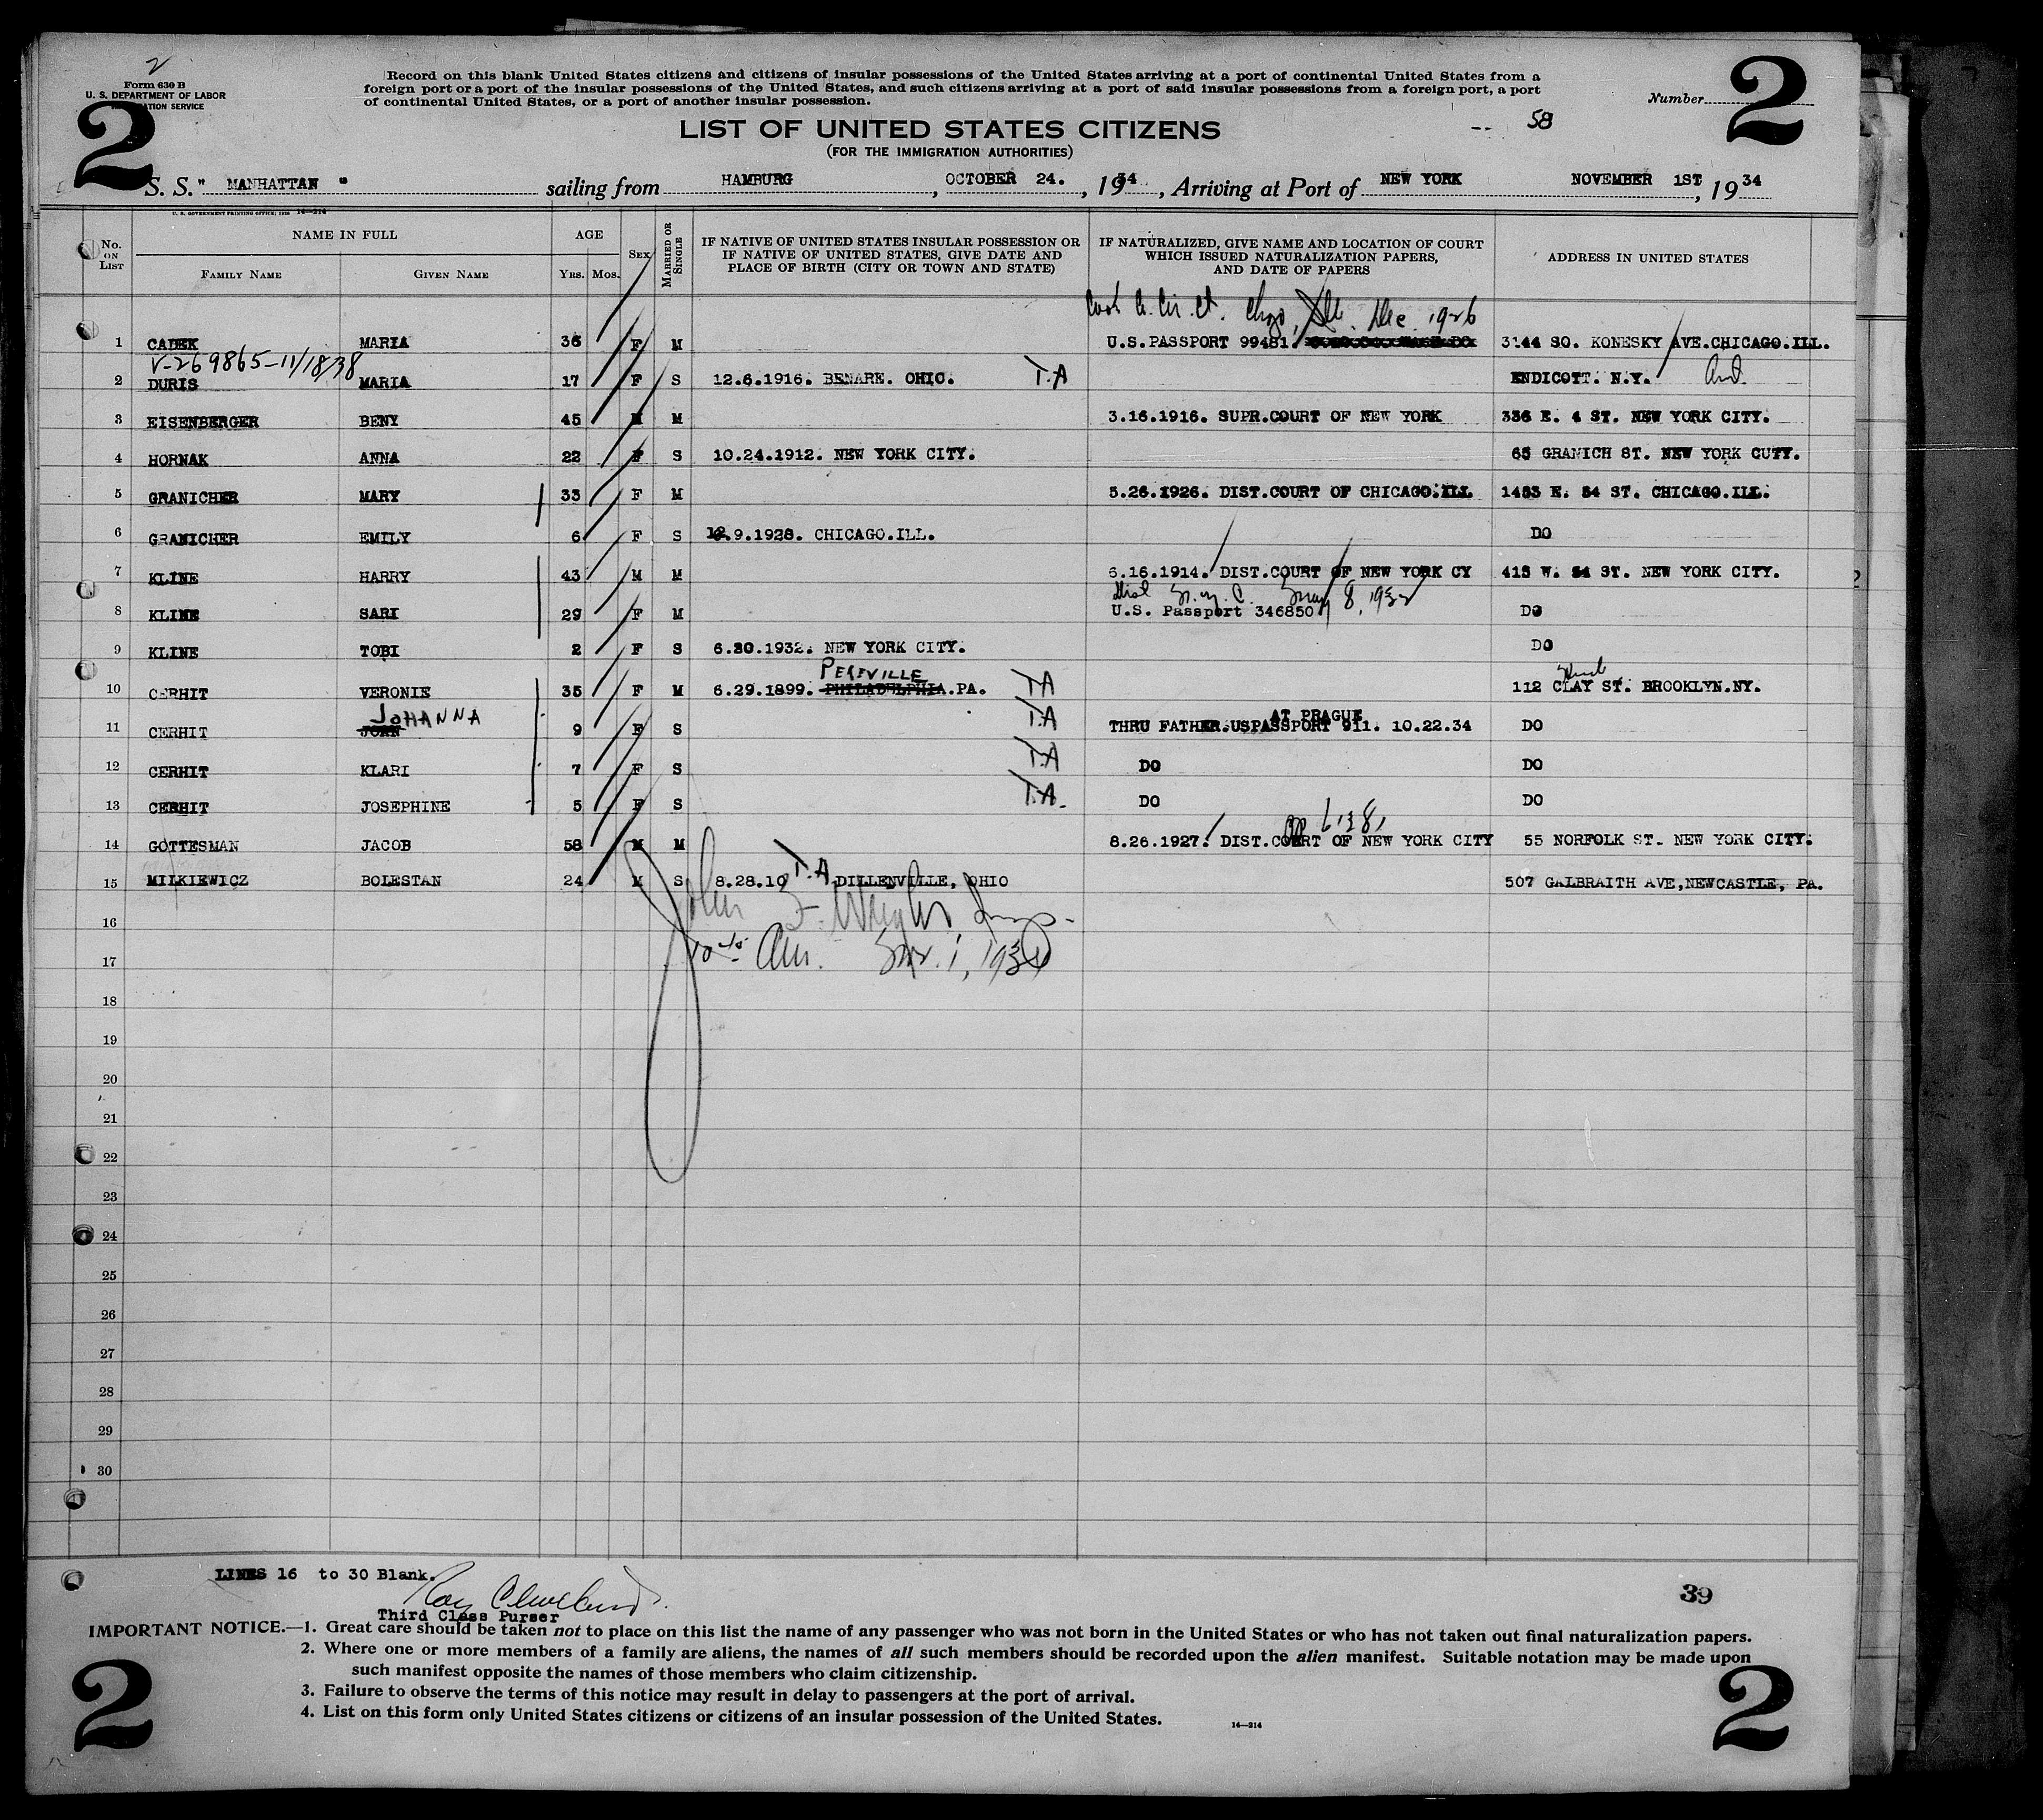 2
Form 630 B
U. S. DEPARTMENT OF LABOR
Record on this blank United States citizens and citizens of insular possessions of the United States arriving at a port of continental United States from a
foreign port or a port of the insular possessions of the United States, and such citizens arriving at a port of said insular possessions from a foreign port, a port
of continental United States, or a port of another insular possession.
Number
2
2
58
LIST OF UNITED STATES CITIZENS
(FOR THE IMMIGRATION AUTHORITIES)
S. S. " MANHATTAN " sailing from HAMBURG, OCTOBER 24. , 1934, Arriving at Port of NEW YORK NOVEMBER 1ST, 1934
U. S. GOVERNMENT PRINTING OFFICE: 14—214
No. ON LIST
NAME IN FULL
FAMILY NAME
GIVEN NAME
AGE
YRS. MOS.
SEX
MARRIED OR SINGLE
IF NATIVE OF UNITED STATES INSULAR POSSESSION OR
IF NATIVE OF UNITED STATES, GIVE DATE AND
PLACE OF BIRTH (CITY OR TOWN AND STATE)
IF NATURALIZED, GIVE NAME AND LOCATION OF COURT
WHICH ISSUED NATURALIZATION PAPERS,
AND DATE OF PAPERS
ADDRESS IN UNITED STATES
Dec. 1926
1 CADEK MARIA 36 F M U.S.PASSPORT 99481. 3144 SO. KONESKY AVE.CHICAGO.ILL.
V-269865-11/18/38
2 DURIS MARIA 17 F S 12.6.1916. BENARE. OHIO. T.A ENDICOTT. N.Y.
3 EISENBERGER BENY 45 M M 3.16.1916. SUPR.COURT OF NEW YORK 336 E. 4 ST. NEW YORK CITY.
4 HORNAK ANNA 22 F S 10.24.1912. NEW YORK CITY. 65 GRANICH ST. NEW YORK CUTY.
5 GRANICHER MARY 33 F M 5.26.1926. DIST.COURT OF CHICAGO.ILL 1453 E. 54 ST. CHICAGO.ILL.
6 GRANICHER EMILY 6 F S 12.9.1928. CHICAGO.ILL. DO
7 KLINE HARRY 43 M M 6.16.1914. DIST.COURT OF NEW YORK CY 413 W. 54 ST. NEW YORK CITY.
8, 1932
8 KLINE SARI 29 F M U.S. Passport 346850 DO
9 KLINE TOBI 2 F S 6.30.1932. NEW YORK CITY. DO
10 CERHIT VERONIE 35 F M 6.29.1899. PHILADULPHIA.PA. T A 112 CLAY ST. BROOKLYN.NY.
JOHANNA
AT PRAGUE
11 CERHIT JOAN 9 F S T.A THRU FATHER.USPASSPORT 911. 10.22.34 DO
12 CERHIT KLARI 7 F S T.A DO DO
13 CERHIT JOSEPHINE 5 F S T.A. DO DO
14 GOTTESMAN JACOB 58 M M 8.26.1927. DIST.COURT OF NEW YORK CITY 55 NORFOLK ST. NEW YORK CITY.
15 MILKIEWICZ BOLESTAN 24 M S 8.28.10 T.A DILLENVILLE, OHIO 507 GALBRAITH AVE,NEWCASTLE, PA.
16
17
18
19
20
21
22
23
24
25
26
27
28
29
30
LINES 16 to 30 Blank.
Third Class Purser
39
IMPORTANT NOTICE.—1. Great care should be taken not to place on this list the name of any passenger who was not born in the United States or who has not taken out final naturalization papers.
2. Where one or more members of a family are aliens, the names of all such members should be recorded upon the alien manifest. Suitable notation may be made upon
such manifest opposite the names of those members who claim citizenship.
3. Failure to observe the terms of this notice may result in delay to passengers at the port of arrival.
4. List on this form only United States citizens or citizens of an insular possession of the United States.
14—214
2
2